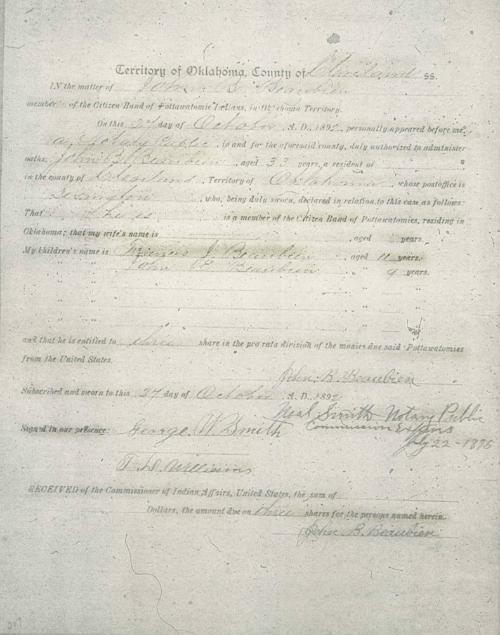 Territory of Oklahoma, County of Cleveland ss.
IN the matter of John B. Beaubien
member of the Citizen Band of Pottawatomie Indians, in Oklahoma Territory.
On this 27 day of October A. D. 1892, personally appeared before me,
a Notary Public, in and for the aforesaid county, duly authorized to administer
oaths, John B. Beaubien, aged 33 years, a resident of
in the county of Cleveland, Territory of Oklahoma, whose postoffice is
Lexington, who, being duly sworn, declared in relation to this case as follows:
That he is is a member of the Citizen Band of Pottawatomies, residing in
Oklahoma; that my wife's name is , aged years.
My children's name is J Beaubien, aged 11 years.
John B. Beaubien " 9 years.
and that he is entitled to three share in the pro rata division of the monies due said Pottawatomies
from the United States.
John B. Beaubien
Subscribed and sworn to this 27 day of October A. D. 1892
Neal Smith Notary Public
Commission Expires
July 22-1895
Signed in our presence: George W Smith
Williams
RECEIVED of the Commissioner of Indian Affairs, United States, the sum of
Dollars, the amount due on three shares for the persons named herein.
John B. Beaubien